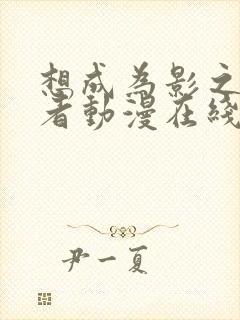 想成为影之
者動漫在綫
尹一夏